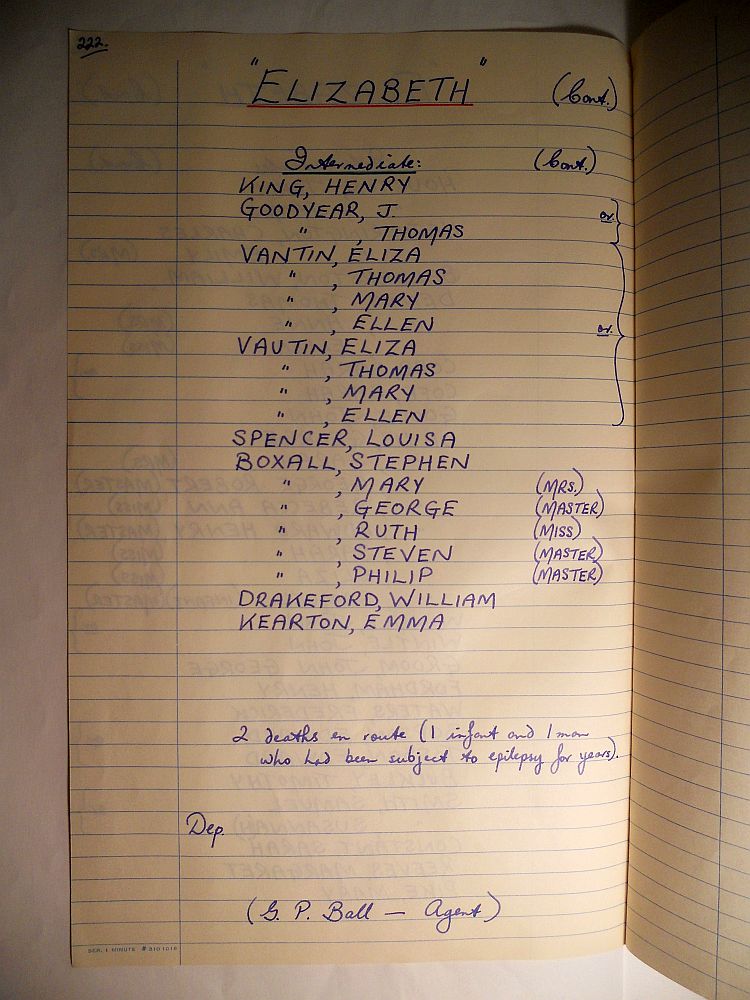 222.
"ELIZABETH" (Cont.)
Intermediate: (Cont.)
KING, HENRY
GOODYEAR, J. or
" , THOMAS
VANTIN, ELIZA
" , THOMAS
" , MARY
" , ELLEN or
VAUTIN, ELIZA
" , THOMAS
" , MARY
" , ELLEN
SPENCER, LOUISA
BOXALL, STEPHEN
" , MARY (MRS.)
" , GEORGE (MASTER)
" , RUTH (MISS)
" , STEVEN (MASTER)
" , PHILIP (MASTER)
DRAKEFORD, WILLIAM
KEARTON, EMMA
2 deaths en route (1 infant and 1 man
who had been subject to epilepsy for years).
Dep.
(G. P. Ball — Agent)
SER. 1 MINUTE # 3101016